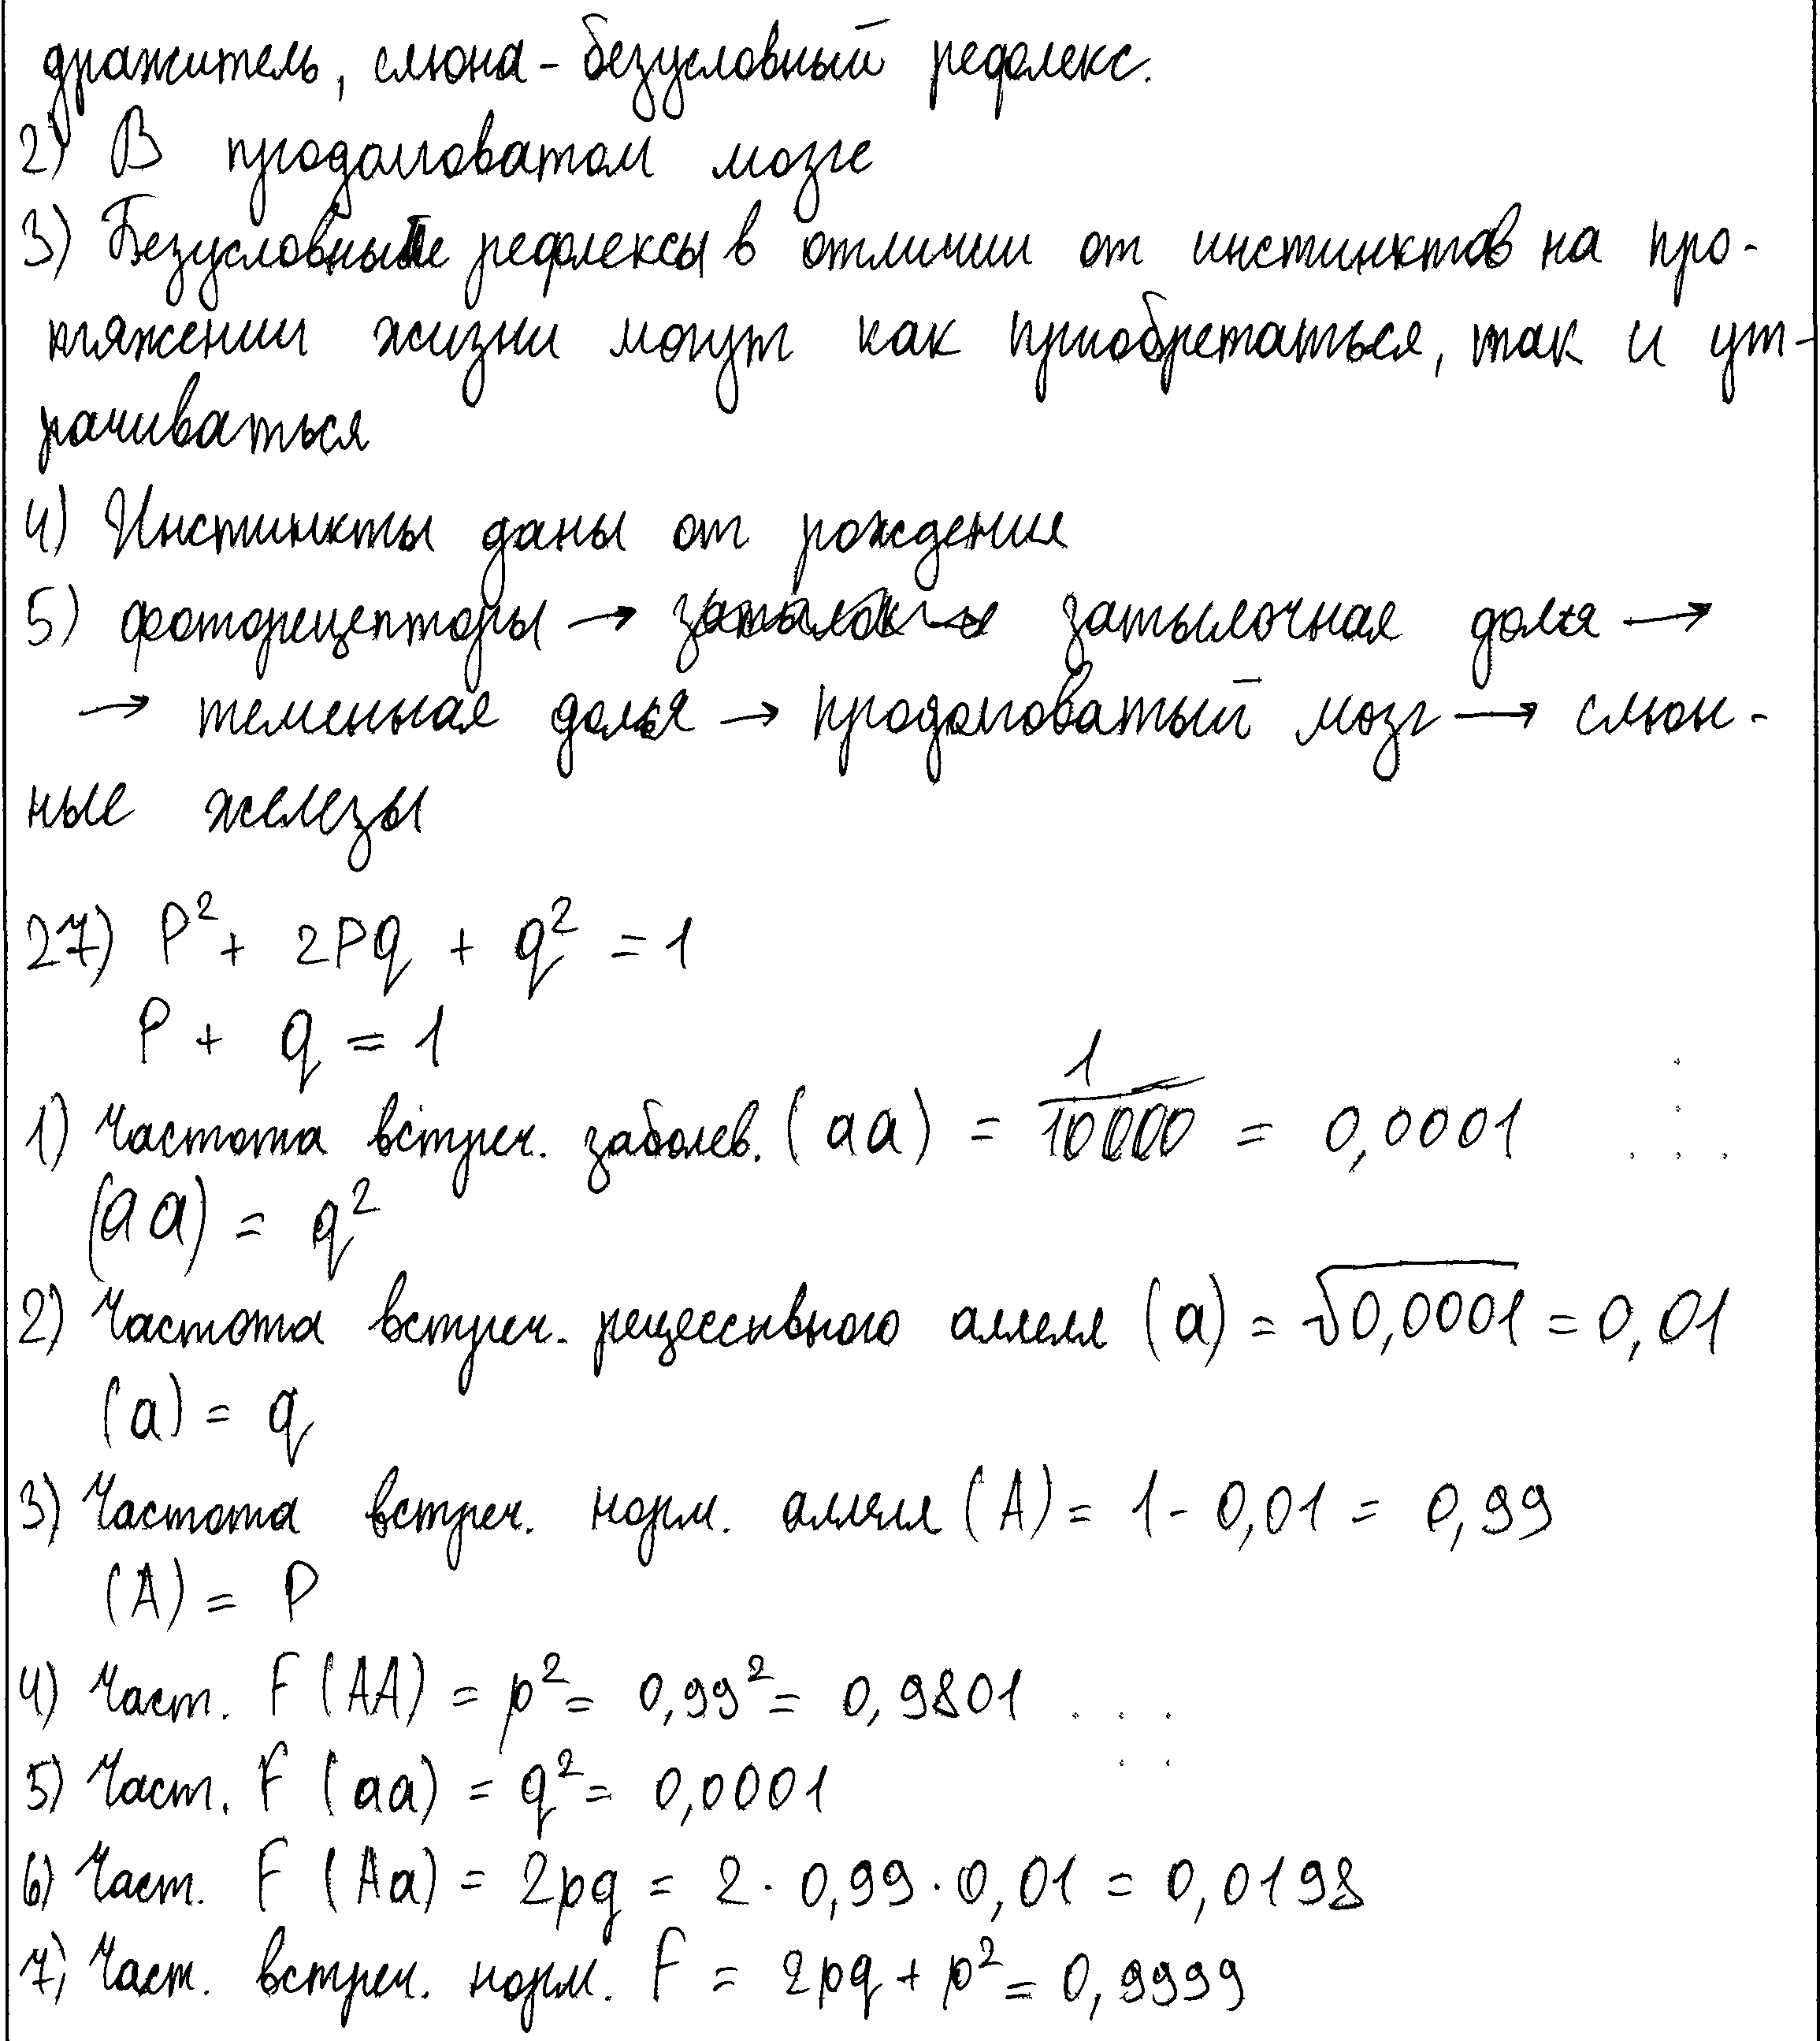 дражитель, слюна - безусловный рефлекс.
2) В продолговатом мозге
3) Безусловные рефлексы в отличии от инстинктов на про-
тяжении жизни могут как приобретаться, так и ут-
рачиваться
4) Инстинкты даны от рождения
5) фоторецепторы → затылочная доля →
→ теменная доля → продолговатый мозг → слюн-
ные железы
27) P² + 2Pq + q² = 1
P + q = 1
1) Частота встреч. заболев. (aa) = 1/10000 = 0,0001
(aa) = q²
2) Частота встреч. рецессивного аллеля (a) = √0,0001 = 0,01
(a) = q
3) Частота встреч. норм. аллеля (A) = 1 - 0,01 = 0,99
(A) = P
4) Част. F (AA) = p² = 0,99² = 0,9801
5) Част. F (aa) = q² = 0,0001
6) Част. F (Aa) = 2pq = 2 · 0,99 · 0,01 = 0,0198
7) Част. встреч. норм. F = 2pq + p² = 0,9999